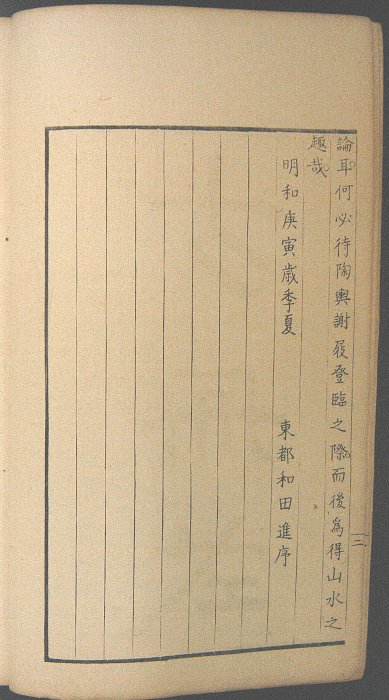 論耳何必待陶輿謝屐登臨之際而後為得山水之
趣哉
明和庚寅歲季夏
東都和田進序
三